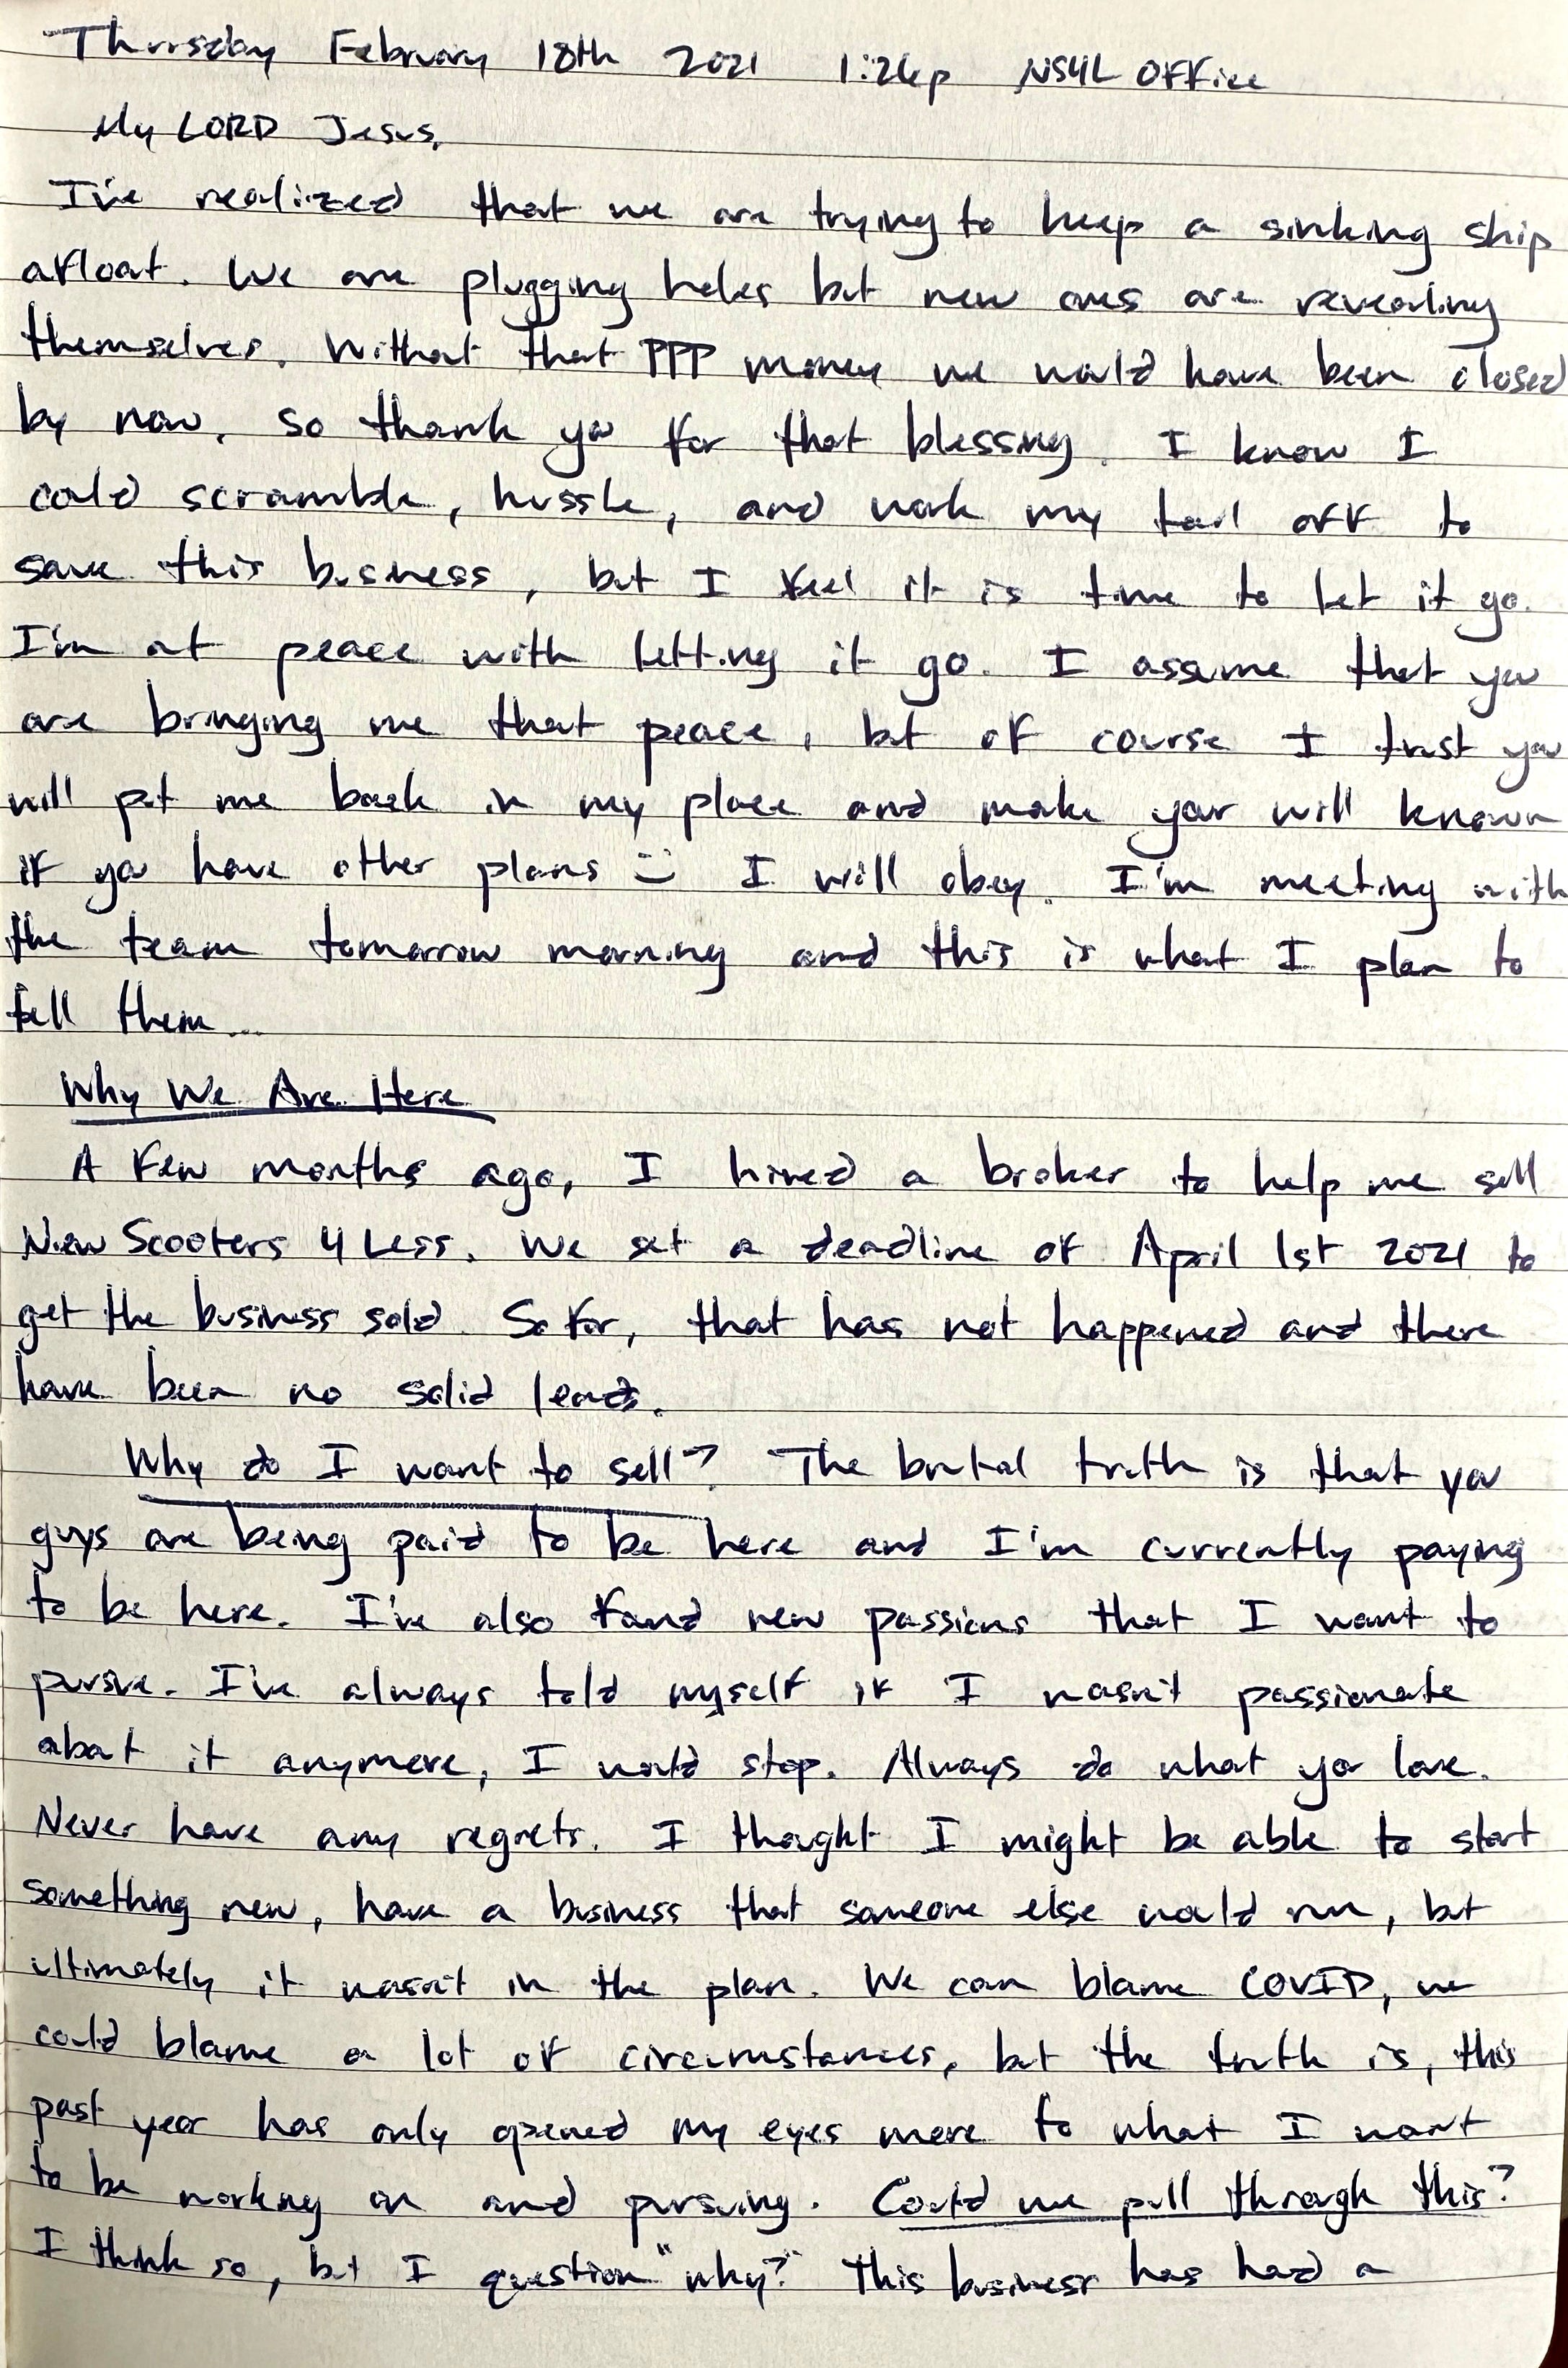 Thursday February 18th 2021 1:26p NS4L Office
My LORD Jesus,
I've realized that we are trying to keep a sinking ship
afloat. We are plugging holes but new ones are revealing
themselves. Without that PPP money we would have been closed
by now, so thank you for that blessing. I know I
could scramble, hussle, and work my tail off to
save this business, but I feel it is time to let it go.
I'm at peace with letting it go. I assume that you
are bringing me that peace, but of course I trust you
will put me back in my place and make your will known
if you have other plans :) I will obey. I'm meeting with
the team tomorrow morning and this is what I plan to
tell them...
Why We Are Here
A few months ago, I hired a broker to help me sell
New Scooters 4 Less. We set a deadline of April 1st 2021 to
get the business sold. So far, that has not happened and there
have been no solid leads.
Why do I want to sell? The brutal truth is that you
guys are being paid to be here and I'm currently paying
to be here. I've also found new passions that I want to
pursue. I've always told myself if I wasn't passionate
about it anymore, I would stop. Always do what you love.
Never have any regrets. I thought I might be able to start
something new, have a business that someone else would run, but
ultimately it wasn't in the plan. We can blame COVID, we
could blame a lot of circumstances, but the truth is, this
past year has only opened my eyes more to what I want
to be working on and pursuing. Could we pull through this?
I think so, but I question "why?" This business has had a